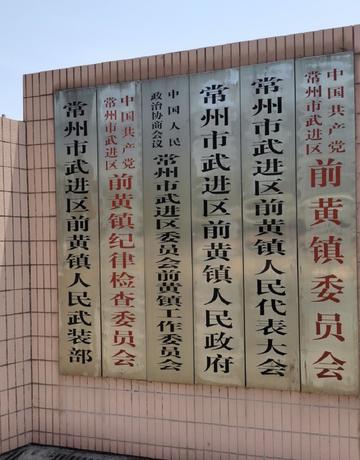 中国共产党
常州市武进区
前黄镇委员会
常州市武进区前黄镇人民代表大会
常州市武进区前黄镇人民政府
中国人民
政治协商会议
常州市武进区委员会前黄镇工作委员会
中国共产党
常州市武进区
前黄镇纪律检查委员会
常州市武进区前黄镇人民武装部